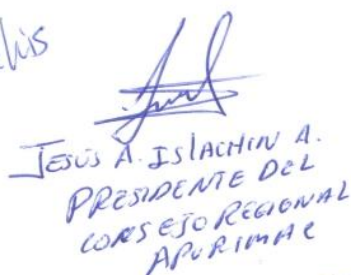 JESÚS A. ISLACHIN A.
PRESIDENTE DEL
CONSEJO REGIONAL
APURIMAC